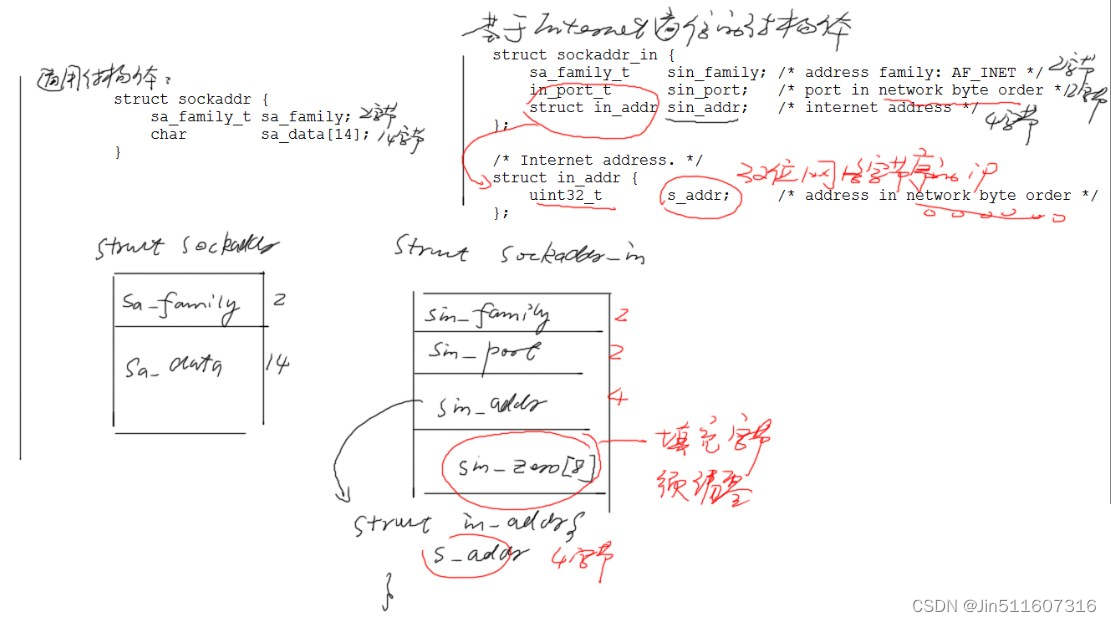 通用结构体:
struct sockaddr {
sa_family_t sa_family; 2字节
char sa_data[14]; 14字节
}
基于Internet通信的结构体
struct sockaddr_in {
sa_family_t sin_family; /* address family: AF_INET */ 2字节
in_port_t sin_port; /* port in network byte order * 2字节
struct in_addr sin_addr; /* internet address */ 4字节
};
/* Internet address. */
struct in_addr { 32位网络字节序的IP
uint32_t s_addr; /* address in network byte order */
};
struct sockaddr
sa_family 2
sa_data 14
struct sockaddr_in
sin_family 2
sin_port 2
sin_addr 4
sin_zero[8] 填充字节
须清零
struct in_addr{
s_addr 4字节
}
CSDN @Jin511607316